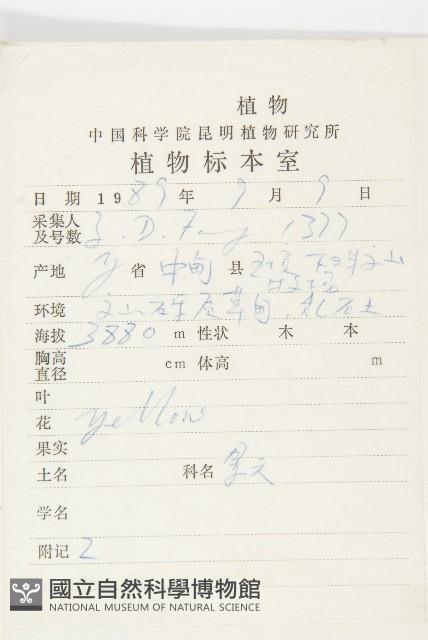 植物
中国科学院昆明植物研究所
植物标本室
日 期 1989 年 9 月 9 日
采集人
及号数 D. 1377
产地 Y 省 中甸 县
环境 草甸
海拔 3880 m 性状 木 本
胸高
直径 cm 体高 m
叶
花 yellow
果实
土名 科名
学名
附记 2
國立自然科學博物館
NATIONAL MUSEUM OF NATURAL SCIENCE